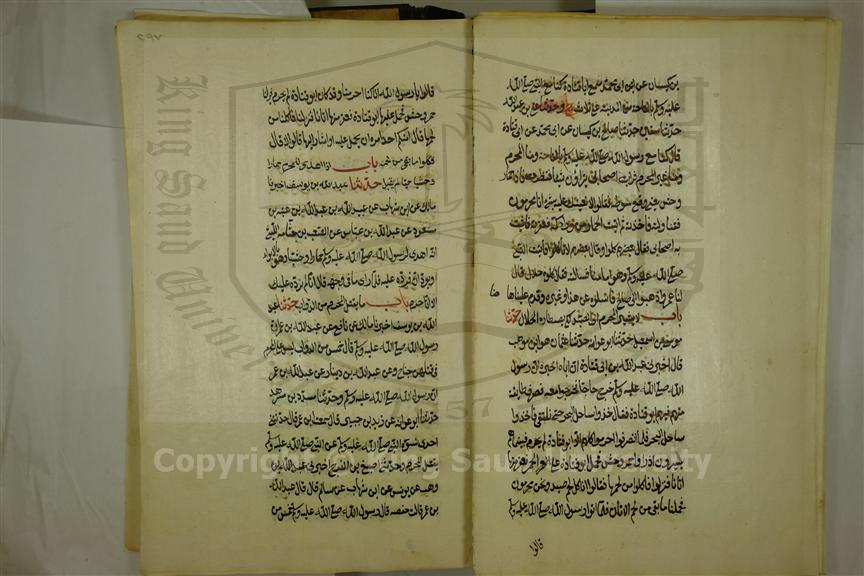 بن كيسان عن ابى محمد سمع ابا قتادة كنا مع النبى صلى الله
عليه وسلم بالقاحة من المدينة على ثلاث ح وحدثنا على بن عبد الله
حدثنا سفين حدثنا صالح بن كيسان عن ابى محمد عن ابى قتادة
قال كنا مع رسول الله صلى الله عليه وسلم بالقاحة ومنا المحرم
ومنا غير المحرم فرايت اصحابى يتراؤن شيئا فنظرت فاذا حمار
وحش يعنى وقع سوطه فقالوا لا نعينك عليه بشئ انا محرمون
فتناولته فاخذته ثم اتيت الحمار من وراء اكمة فعقرته فاتيت
به اصحابى فقال بعضهم كلوا وقال بعضهم لا تاكلوا فاتيت النبى
صلى الله عليه وسلم وهو امامنا فسالته فقال كلوه حلال قال
لنا عمرو اذهبوا الى صالح فاسئلوه عن هذا وغيره وقدم علينا هاهنا
باب لا يشير المحرم الى الصيد لكى يصطاده الحلال حدثنا
موسى بن اسمعيل حدثنا ابو عوانة حدثنا عثمان هو ابن موهب
قال اخبرنى عبد الله بن ابى قتادة ان اباه اخبره ان رسول
الله صلى الله عليه وسلم خرج حاجا فخرجوا معه فصرف طائفة
منهم فيهم ابو قتادة فقال خذوا ساحل البحر حتى نلتقى فاخذوا
ساحل البحر فلما انصرفوا احرموا كلهم الا ابو قتادة لم يحرم فبينما هم
يسيرون اذ راوا حمر وحش فحمل ابو قتادة على الحمر فعقر منها
اتانا فنزلوا فاكلوا من لحمها فقالوا اناكل لحم صيد ونحن محرمون
فحملنا ما بقى من لحم الاتان فلما اتوا رسول الله صلى الله عليه وسلم
قالوا
٢٩٧
قالوا يا رسول الله انا كنا احرمنا وقد كان ابو قتادة لم يحرم فراينا
حمر وحش فحمل عليها ابو قتادة فعقر منها اتانا فنزلنا فاكلنا من
لحمها قال امنكم احد امره ان يحمل عليه او اشار اليها قالوا لا قال
فكلوا ما بقى من لحمها باب اذا اهدى للمحرم حمارا
وحشيا حيا لم يقبل حدثنا عبد الله بن يوسف اخبرنا
مالك عن ابن شهاب عن عبيد الله بن عبد الله بن عتبة بن
مسعود عن عبد الله بن عباس عن الصعب بن جثامة الليثى
انه اهدى لرسول الله صلى الله عليه وسلم حمارا وحشيا وهو بالابواء
او بودان فرده عليه فلما راى ما فى وجهه قال انا لم نرده عليك
الا انا حرم باب ما يقتل المحرم من الدواب حدثنا عبد
الله بن يوسف اخبرنا مالك عن نافع عن عبد الله بن عمر ان
رسول الله صلى الله عليه وسلم قال خمس من الدواب ليس على المحرم
فى قتلهن جناح وعن عبد الله بن دينار عن عبد الله بن عمر
ان رسول الله صلى الله عليه وسلم وحدثنا مسدد بن مسرهد
حدثنا ابو عوانة عن زيد بن جبير قال سمعت ابن عمر قال حدثتنى
احدى نسوة النبى صلى الله عليه وسلم عن النبى صلى الله عليه وسلم
يقتل المحرم وحدثنا اصبغ بن الفرج اخبرنى عبد الله بن
وهب عن يونس عن ابن شهاب عن سالم قال قال عبد الله
بن عمر قالت حفصة قال رسول الله صلى الله عليه وسلم خمس من
King Saud University
1957
Copyright © King Saud University